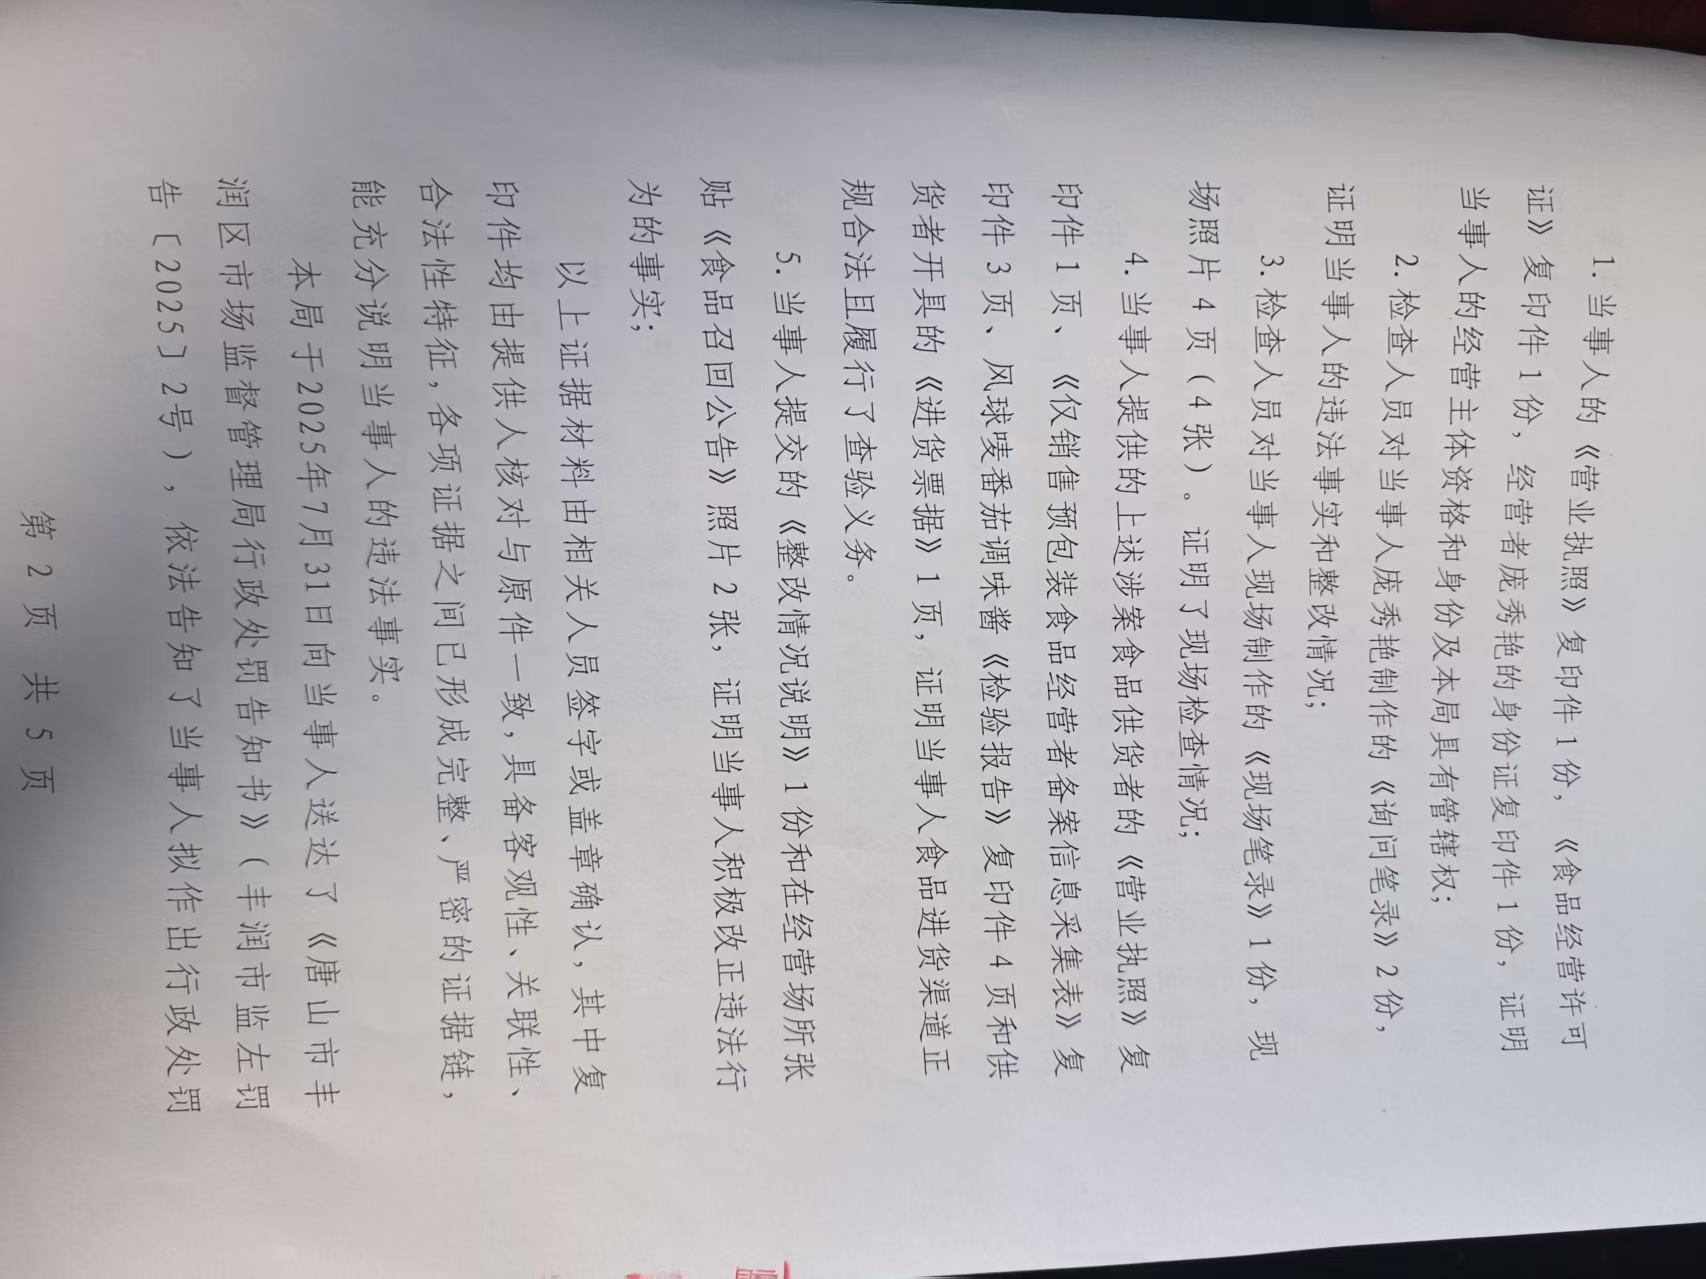 1.当事人的《营业执照》复印件1份，《食品经营许可
证》复印件1份，经营者庞秀艳的身份证复印件1份，证明
当事人的经营主体资格和身份及本局具有管辖权；
2.检查人员对当事人庞秀艳制作的《询问笔录》2份，
证明当事人的违法事实和整改情况；
3.检查人员对当事人现场制作的《现场笔录》1份，现
场照片4页（4张）。证明了现场检查情况；
4.当事人提供的上述涉案食品供货者的《营业执照》复
印件1页、《仅销售预包装食品经营者备案信息采集表》复
印件3页、风球唛番茄调味酱《检验报告》复印件4页和供
货者开具的《进货票据》1页，证明当事人食品进货渠道正
规合法且履行了查验义务。
5.当事人提交的《整改情况说明》1份和在经营场所张
贴《食品召回公告》照片2张，证明当事人积极改正违法行
为的事实；
以上证据材料由相关人员签字或盖章确认，其中复
印件均由提供人核对与原件一致，具备客观性、关联性、
合法性特征，各项证据之间已形成完整、严密的证据链，
能充分说明当事人的违法事实。
本局于2025年7月31日向当事人送达了《唐山市丰
润区市场监督管理局行政处罚告知书》（丰润市监左罚
告〔2025〕2号），依法告知了当事人拟作出行政处罚
第 2 页 共 5 页